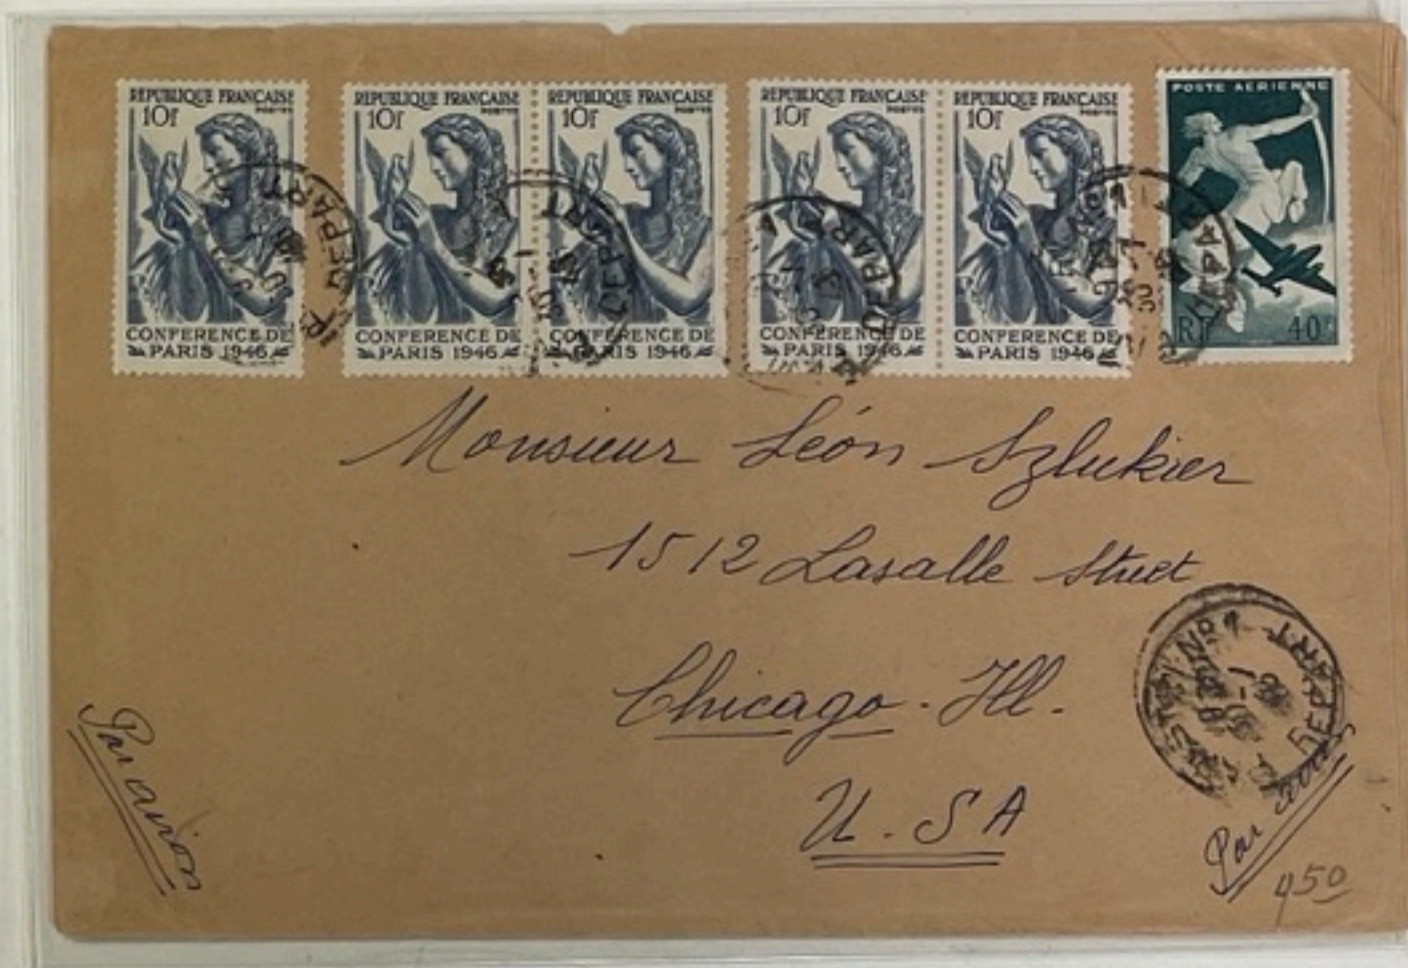 REPUBLIQUE FRANÇAISE
POSTES
10f
CONFERENCE DE
PARIS 1946
REPUBLIQUE FRANÇAISE
POSTES
10f
CONFERENCE DE
PARIS 1946
REPUBLIQUE FRANÇAISE
POSTES
10f
CONFERENCE DE
PARIS 1946
REPUBLIQUE FRANÇAISE
POSTES
10f
CONFERENCE DE
PARIS 1946
REPUBLIQUE FRANÇAISE
POSTES
10f
CONFERENCE DE
PARIS 1946
POSTE AERIENNE
RF 40f
DEPART
DEPART
DEPART
DEPART
Monsieur Léon Szlukier
1512 Lasalle Street
Chicago. Ill.
U. S A
No 1
DEPART
Par avion
Par avion
450